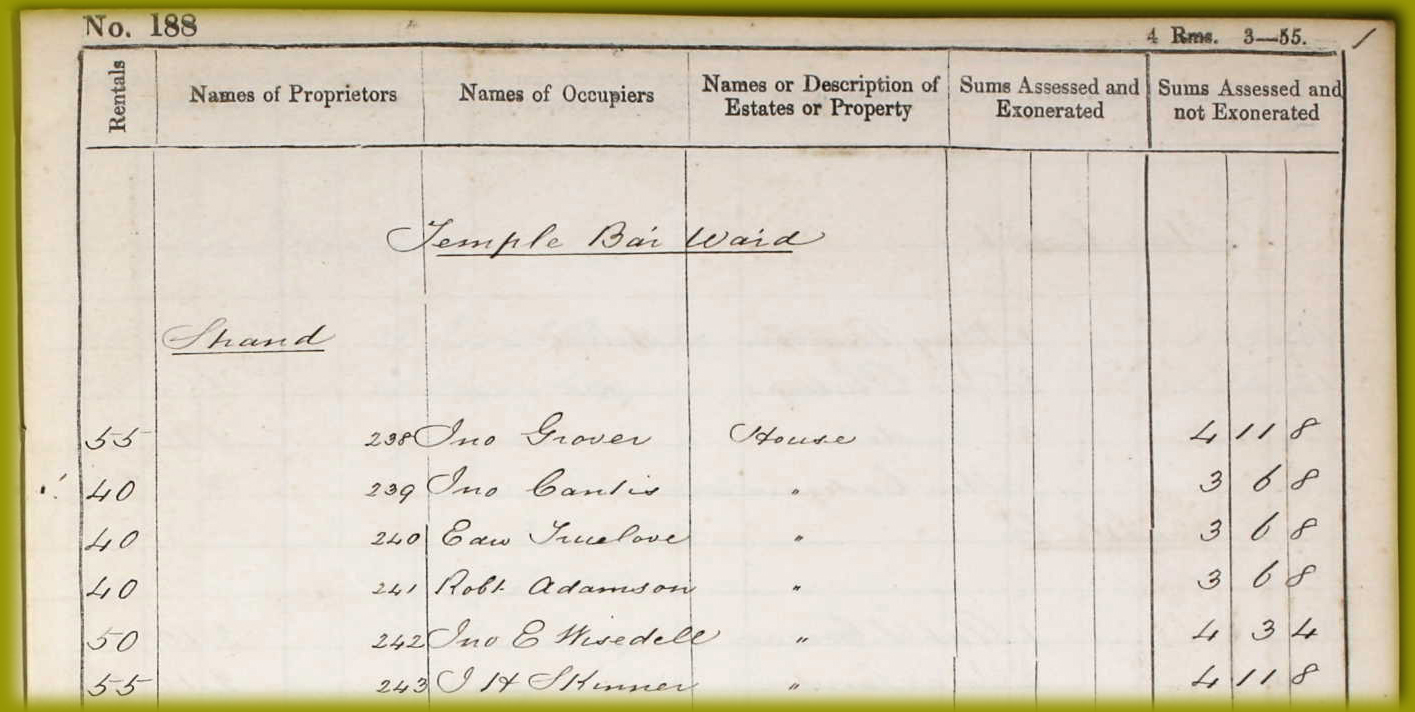 No. 188 4 Rms. 3—55. 1
Rentals Names of Proprietors Names of Occupiers Names or Description of Estates or Property Sums Assessed and Exonerated Sums Assessed and not Exonerated
Temple Bar Ward
Strand
55 238 Jno Grover House 4 11 8
40 239 Jno Cantis " 3 6 8
40 240 Edw Truelove " 3 6 8
40 241 Robt Adamson " 3 6 8
50 242 Jno E Wisedell " 4 3 4
55 243 J H Skinner " 4 11 8